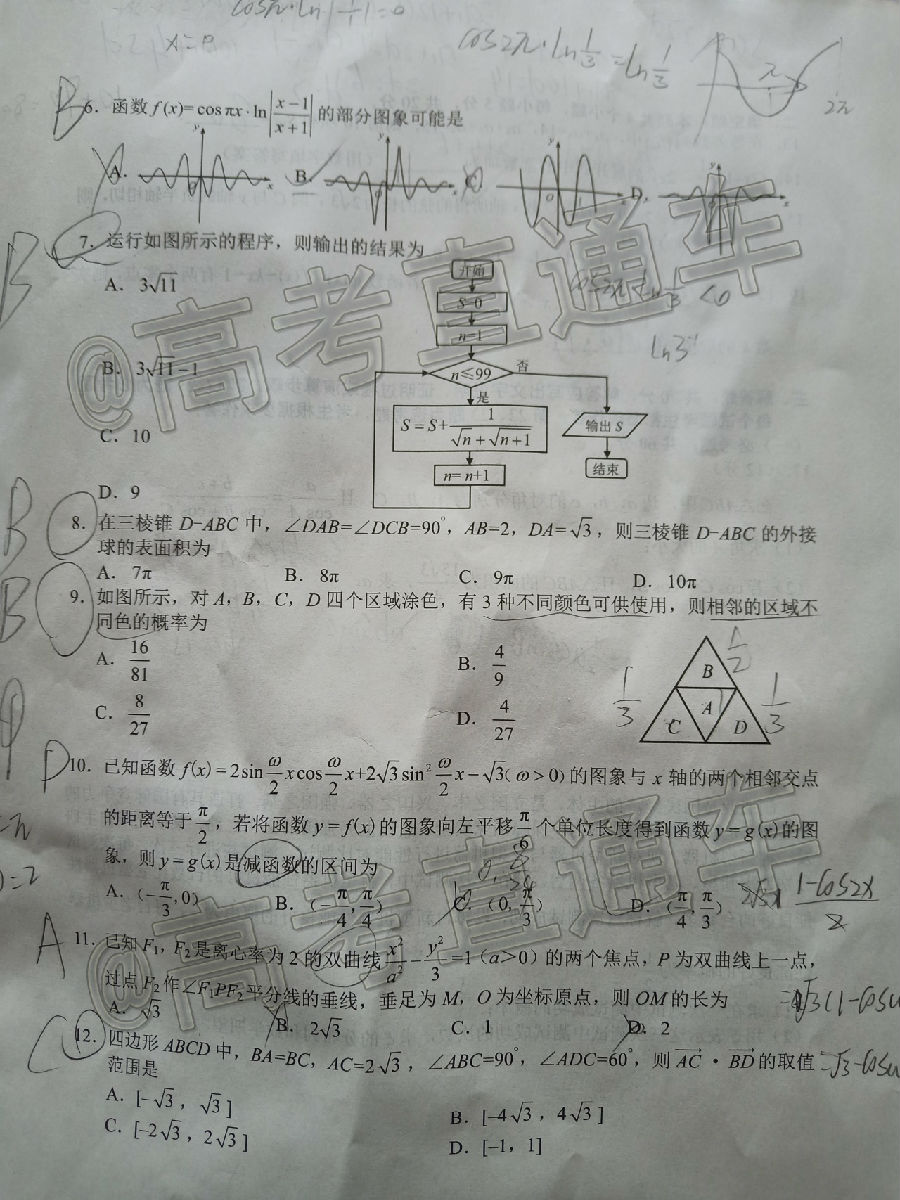 cos π·ln|1/1|=0
x=e
cos2π·ln 1/3 = ln 1/3
π
1
2π
B
6. 函数 f(x)=cos πx·ln|(x−1)/(x+1)| 的部分图象可能是
A. B. C. D.
B
7. 运行如图所示的程序，则输出的结果为
A. 3√11
B. 3√11−1
C. 10
D. 9
开始
S=0
n=1
n≤99
否
是
S=S+1/(√n+√(n+1))
n=n+1
输出 S
结束
<0
ln3⁻¹
B
8. 在三棱锥 D−ABC 中，∠DAB=∠DCB=90°，AB=2，DA=√3，则三棱锥 D−ABC 的外接
球的表面积为
A. 7π B. 8π C. 9π D. 10π
B
9. 如图所示，对 A，B，C，D 四个区域涂色，有 3 种不同颜色可供使用，则相邻的区域不
同色的概率为
A. 16/81 B. 4/9
C. 8/27 D. 4/27
B
C A D
1/2
1/3
1/3
10. 已知函数 f(x)=2sin ω/2 xcos ω/2 x+2√3sin² ω/2 x−√3(ω>0)的图象与 x 轴的两个相邻交点
的距离等于 π/2，若将函数 y=f(x)的图象向左平移 π/6 个单位长度得到函数 y=g(x)的图
象，则 y=g(x)是减函数的区间为
A. (−π/3,0) B. (−π/4,π/4) C. (0,π/3) D. (π/4,π/3)
=π
=2
1−cos2x/2
A
11. 已知 F₁，F₂是离心率为 2 的双曲线 x²/a²−y²/3=1（a>0）的两个焦点，P 为双曲线上一点，
过点 F₂作∠F₁PF₂平分线的垂线，垂足为 M，O 为坐标原点，则 OM 的长为
A. √3 B. 2√3 C. 1 D. 2
=√3(1−cosω
=√3−cosω
C
12. 四边形 ABCD 中，BA=BC，AC=2√3，∠ABC=90°，∠ADC=60°，则 AC·BD 的取值
范围是
A. [−√3，√3] B. [−4√3，4√3]
C. [−2√3，2√3] D. [−1，1]
@高考直通车
@高考直通车